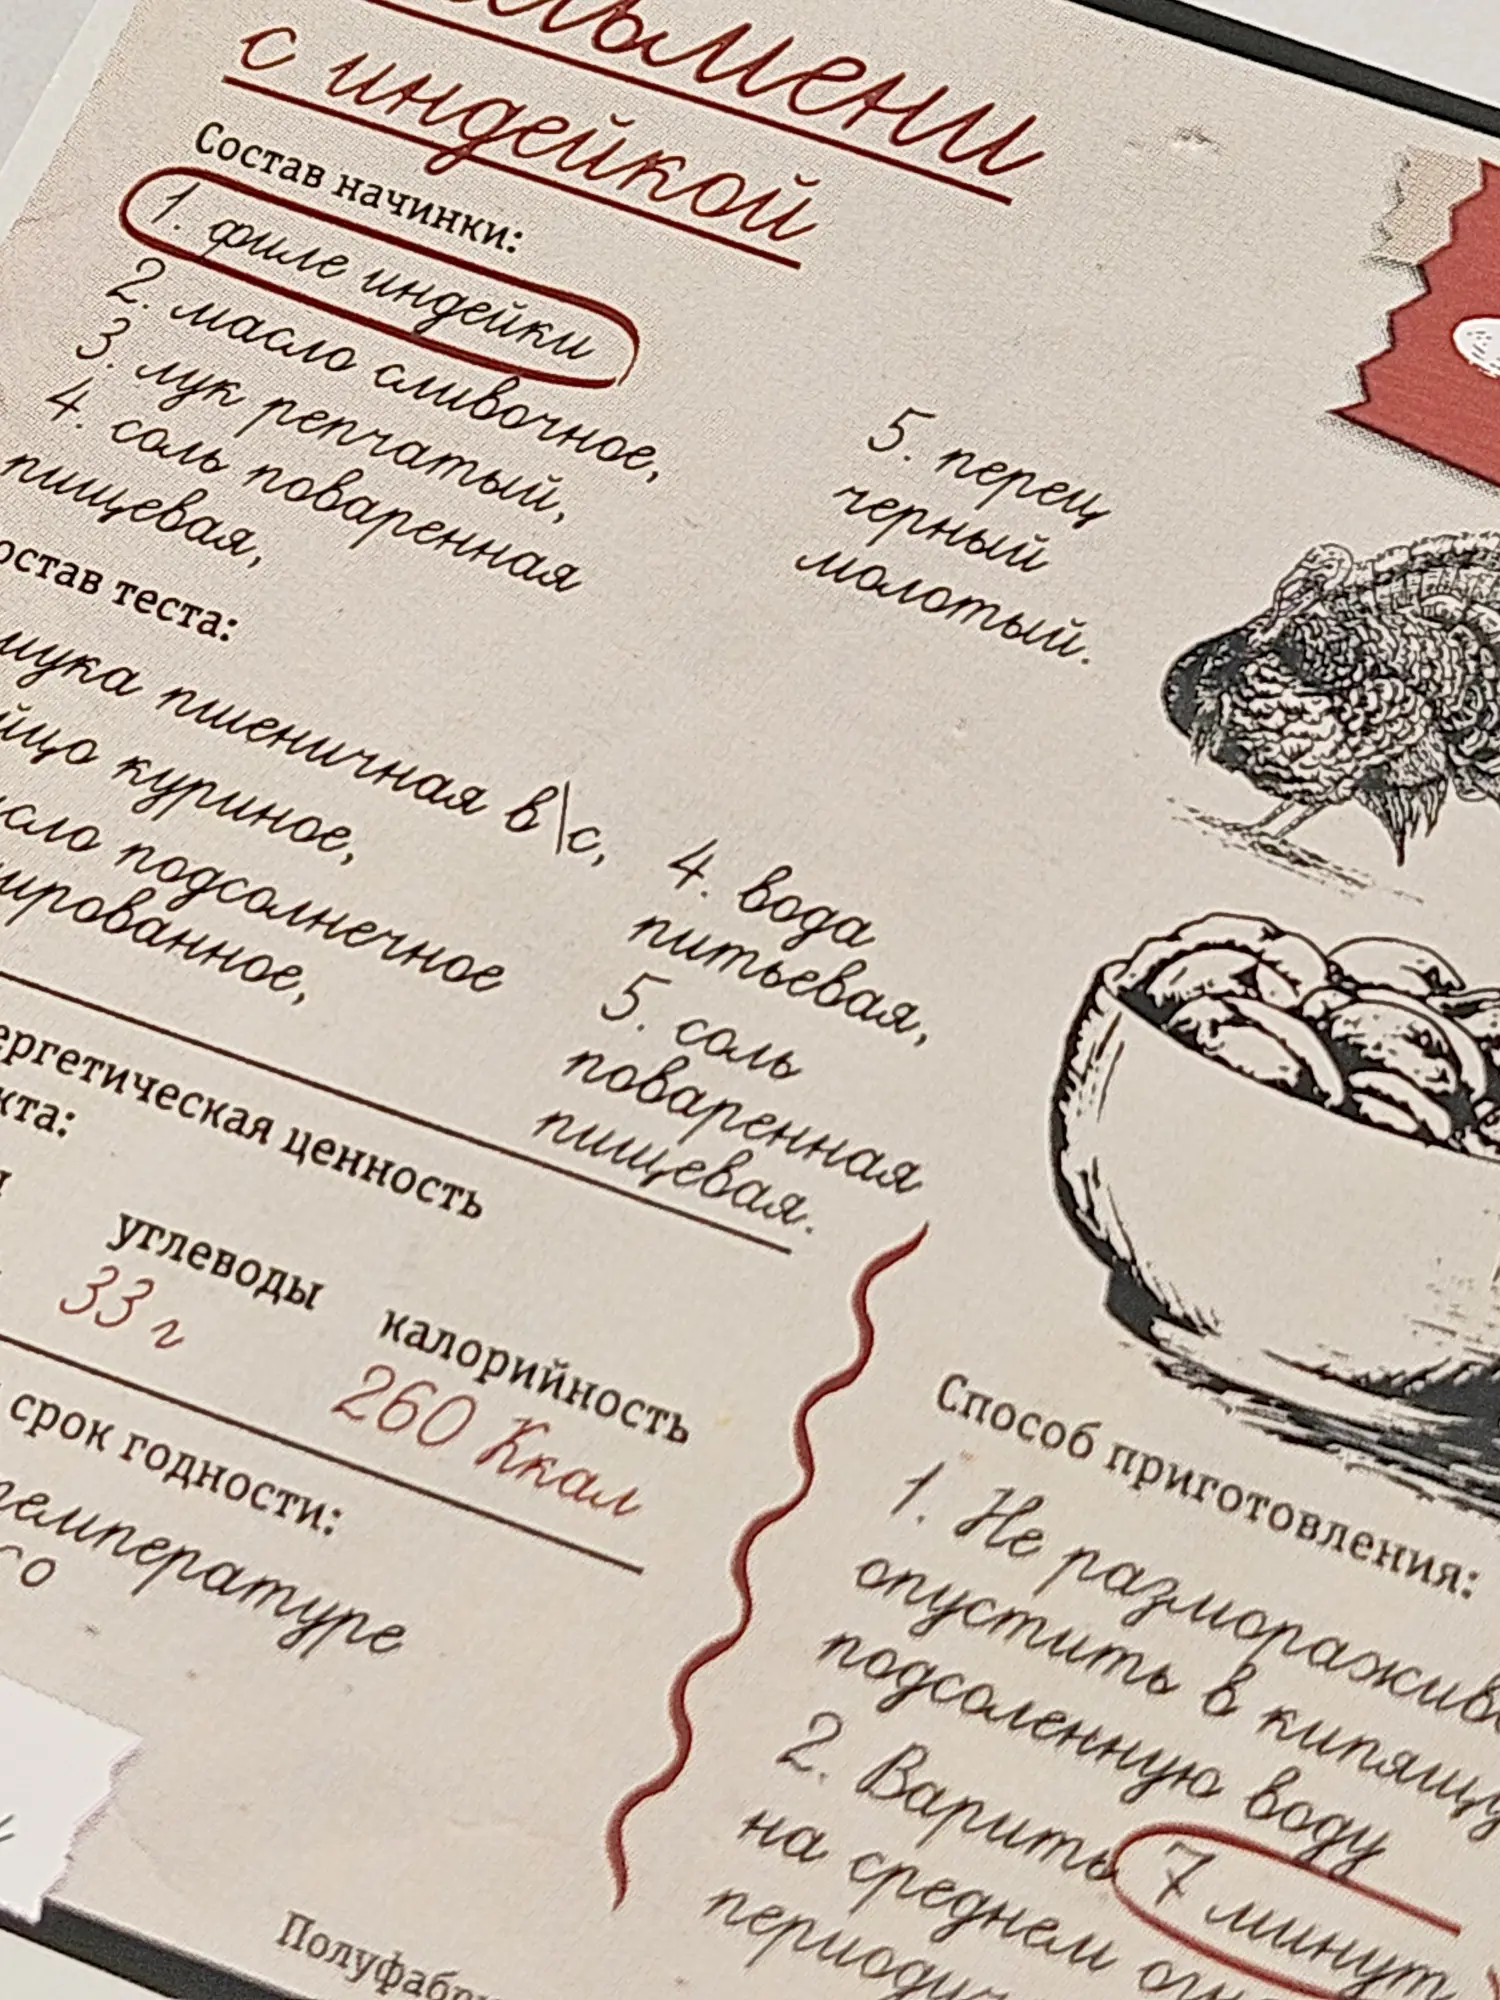 с индейкой
Состав начинки:
1. филе индейки
2. масло сливочное,
3. лук репчатый,
4. соль поваренная
пищевая,
5. перец
черный
молотый.
остав теста:
мука пшеничная в\с,
йцо куриное,
сло подсолнечное
ированное,
4. вода
питьевая,
5. соль
поваренная
пищевая.
ергетическая ценность
кта:
углеводы
33 г
калорийность
260 Ккал
срок годности:
температуре
Способ приготовления:
1. Не разморажив
опустить в кипящу
подсоленную воду
2. Варить 7 минут
на среднем огн
периодич
Полуфабри